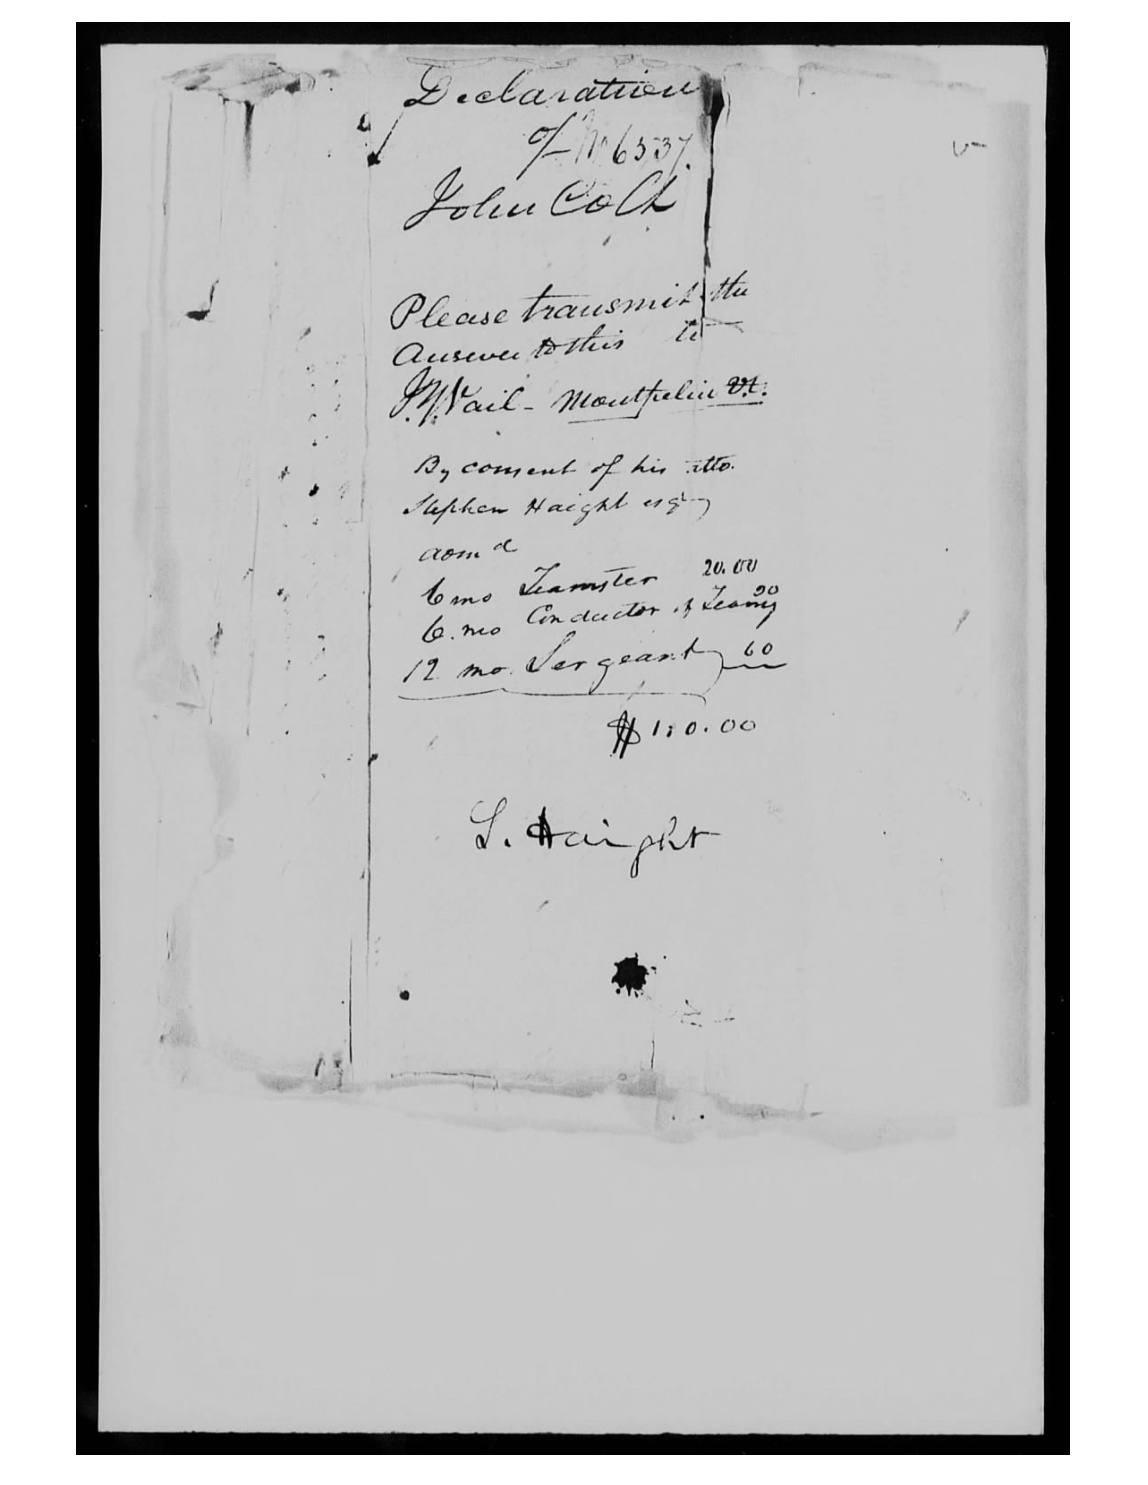 Declaration
of No 6537
John Colt
Please transmit the
Answer to this to
J. Y. Vail - Montpelier Vt.
By consent of his atto.
Stephen Haight esqr
aom d
6 mo Teamster 20.00
6. mo Conductor of Teams 30
12 mo. Sergeant 60
$110.00
S. Haight